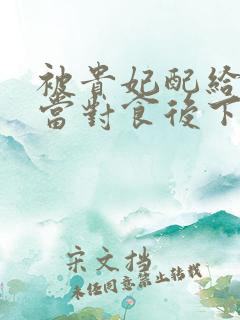 被貴妃配給
當對食後下
宋文挡
未经同意禁止转载